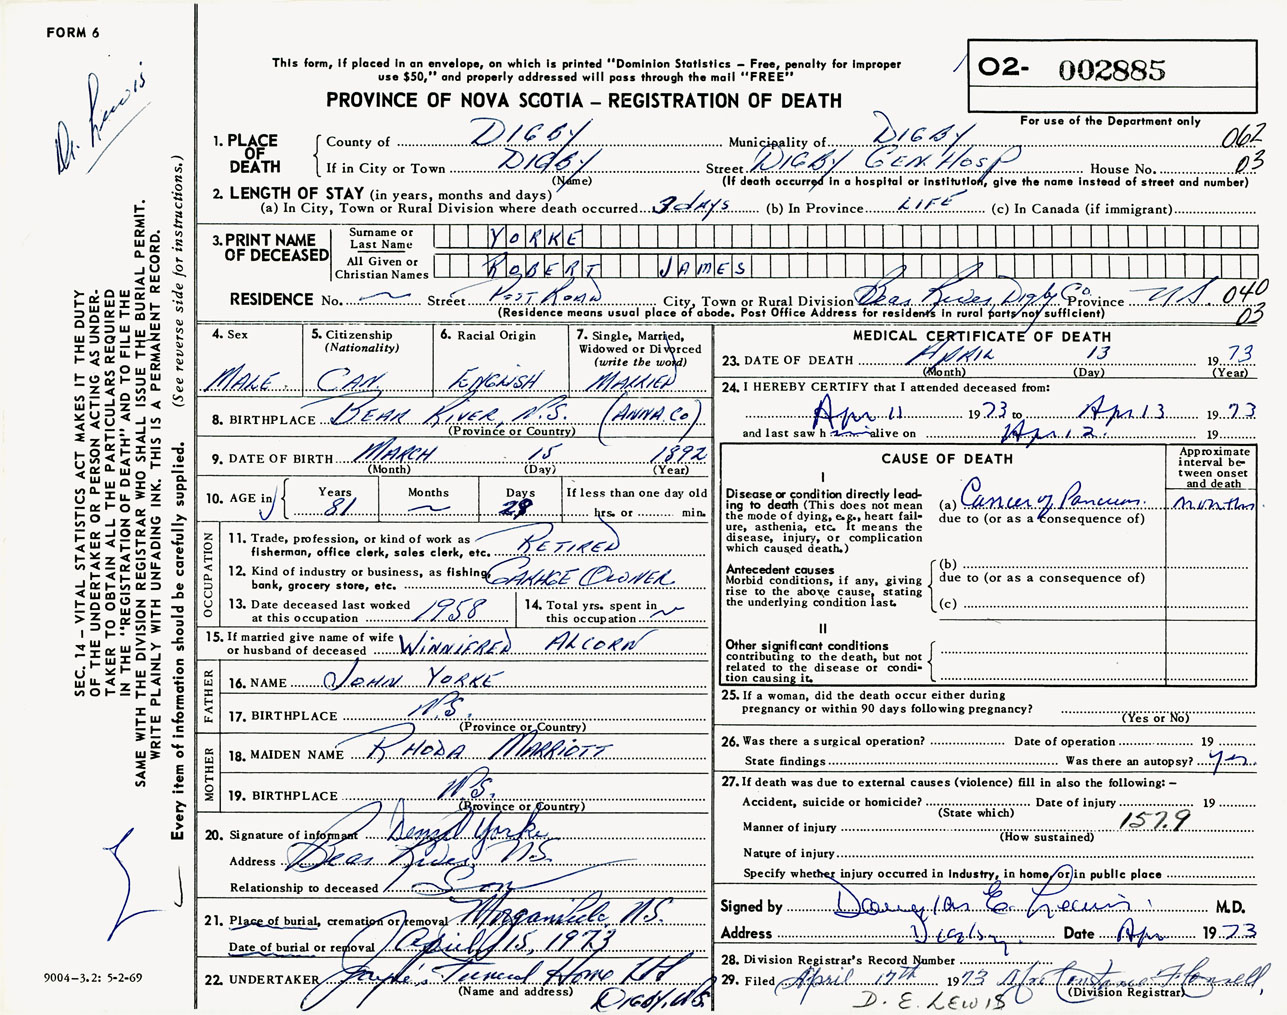 FORM 6
Dr. Lewis
This form, if placed in an envelope, on which is printed "Dominion Statistics – Free, penalty for improper
use $50," and properly addressed will pass through the mail "FREE"
PROVINCE OF NOVA SCOTIA – REGISTRATION OF DEATH
O2- 002885
For use of the Department only
1. PLACE OF DEATH
County of DIGBY Municipality of DIGBY 062
If in City or Town DIGBY Street DIGBY GEN. HOSP House No. 03
(Name) (If death occurred in a hospital or institution, give the name instead of street and number)
2. LENGTH OF STAY (in years, months and days)
(a) In City, Town or Rural Division where death occurred 3 days (b) In Province LIFE (c) In Canada (if immigrant)
3. PRINT NAME OF DECEASED
Surname or Last Name YORKE
All Given or Christian Names ROBERT JAMES
RESIDENCE No. ~ Street POST ROAD City, Town or Rural Division Bear River, Digby Co. Province N.S. 040
(Residence means usual place of abode. Post Office Address for residents in rural parts not sufficient) 03
4. Sex
MALE
5. Citizenship
(Nationality)
CAN.
6. Racial Origin
ENGLISH
7. Single, Married,
Widowed or Divorced
(write the word)
MARRIED
8. BIRTHPLACE BEAR RIVER, N.S. (ANNA. CO)
(Province or Country)
9. DATE OF BIRTH MARCH 15 1892
(Month) (Day) (Year)
10. AGE in Years 81 Months ~ Days 29 If less than one day old
hrs. or min.
OCCUPATION
11. Trade, profession, or kind of work as
fisherman, office clerk, sales clerk, etc. RETIRED
12. Kind of industry or business, as fishing,
bank, grocery store, etc. GARAGE OWNER
13. Date deceased last worked
at this occupation 1958
14. Total yrs. spent in
this occupation ~
15. If married give name of wife
or husband of deceased WINNIFRED ALCORN
FATHER
16. NAME JOHN YORKE
17. BIRTHPLACE N.S.
(Province or Country)
MOTHER
18. MAIDEN NAME RHODA MARRIOTT
19. BIRTHPLACE N.S.
(Province or Country)
20. Signature of informant Yorke
Address Bear River, N.S.
Relationship to deceased Son
21. Place of burial, cremation or removal N.S.
Date of burial or removal April 15, 1973
22. UNDERTAKER Funeral Home Ltd
(Name and address) DIGBY, N.S.
MEDICAL CERTIFICATE OF DEATH
23. DATE OF DEATH APRIL 13 1973
(Month) (Day) (Year)
24. I HEREBY CERTIFY that I attended deceased from:
Apr 11 1973 to Apr 13 1973
and last saw h alive on Apr. 12. 19
CAUSE OF DEATH
Approximate
interval be-
tween onset
and death
I
Disease or condition directly lead-
ing to death (This does not mean
the mode of dying, e.g., heart fail-
ure, asthenia, etc. It means the
disease, injury, or complication
which caused death.)
(a) Cancer of Pancreas. months
due to (or as a consequence of)
Antecedent causes
Morbid conditions, if any, giving
rise to the above cause, stating
the underlying condition last.
(b)
due to (or as a consequence of)
(c)
II
Other significant conditions
contributing to the death, but not
related to the disease or condi-
tion causing it.
25. If a woman, did the death occur either during
pregnancy or within 90 days following pregnancy?
(Yes or No)
26. Was there a surgical operation? Date of operation 19
State findings Was there an autopsy? yes.
27. If death was due to external causes (violence) fill in also the following: –
Accident, suicide or homicide? Date of injury 19
(State which)
Manner of injury 157.9
(How sustained)
Nature of injury
Specify whether injury occurred in industry, in home, or in public place
Signed by Douglas E Lewis M.D.
Address Digby. Date Apr 1973
28. Division Registrar's Record Number
29. Filed April 17th 1973
(Division Registrar)
D. E. LEWIS
SEC. 14 – VITAL STATISTICS ACT MAKES IT THE DUTY
OF THE UNDERTAKER OR PERSON ACTING AS UNDER-
TAKER TO OBTAIN ALL THE PARTICULARS REQUIRED
IN THE "REGISTRATION OF DEATH" AND TO FILE THE
SAME WITH THE DIVISION REGISTRAR WHO SHALL ISSUE THE BURIAL PERMIT.
WRITE PLAINLY WITH UNFADING INK. THIS IS A PERMANENT RECORD.
Every item of information should be carefully supplied. (See reverse side for instructions.)
9004–3.2: 5-2-69